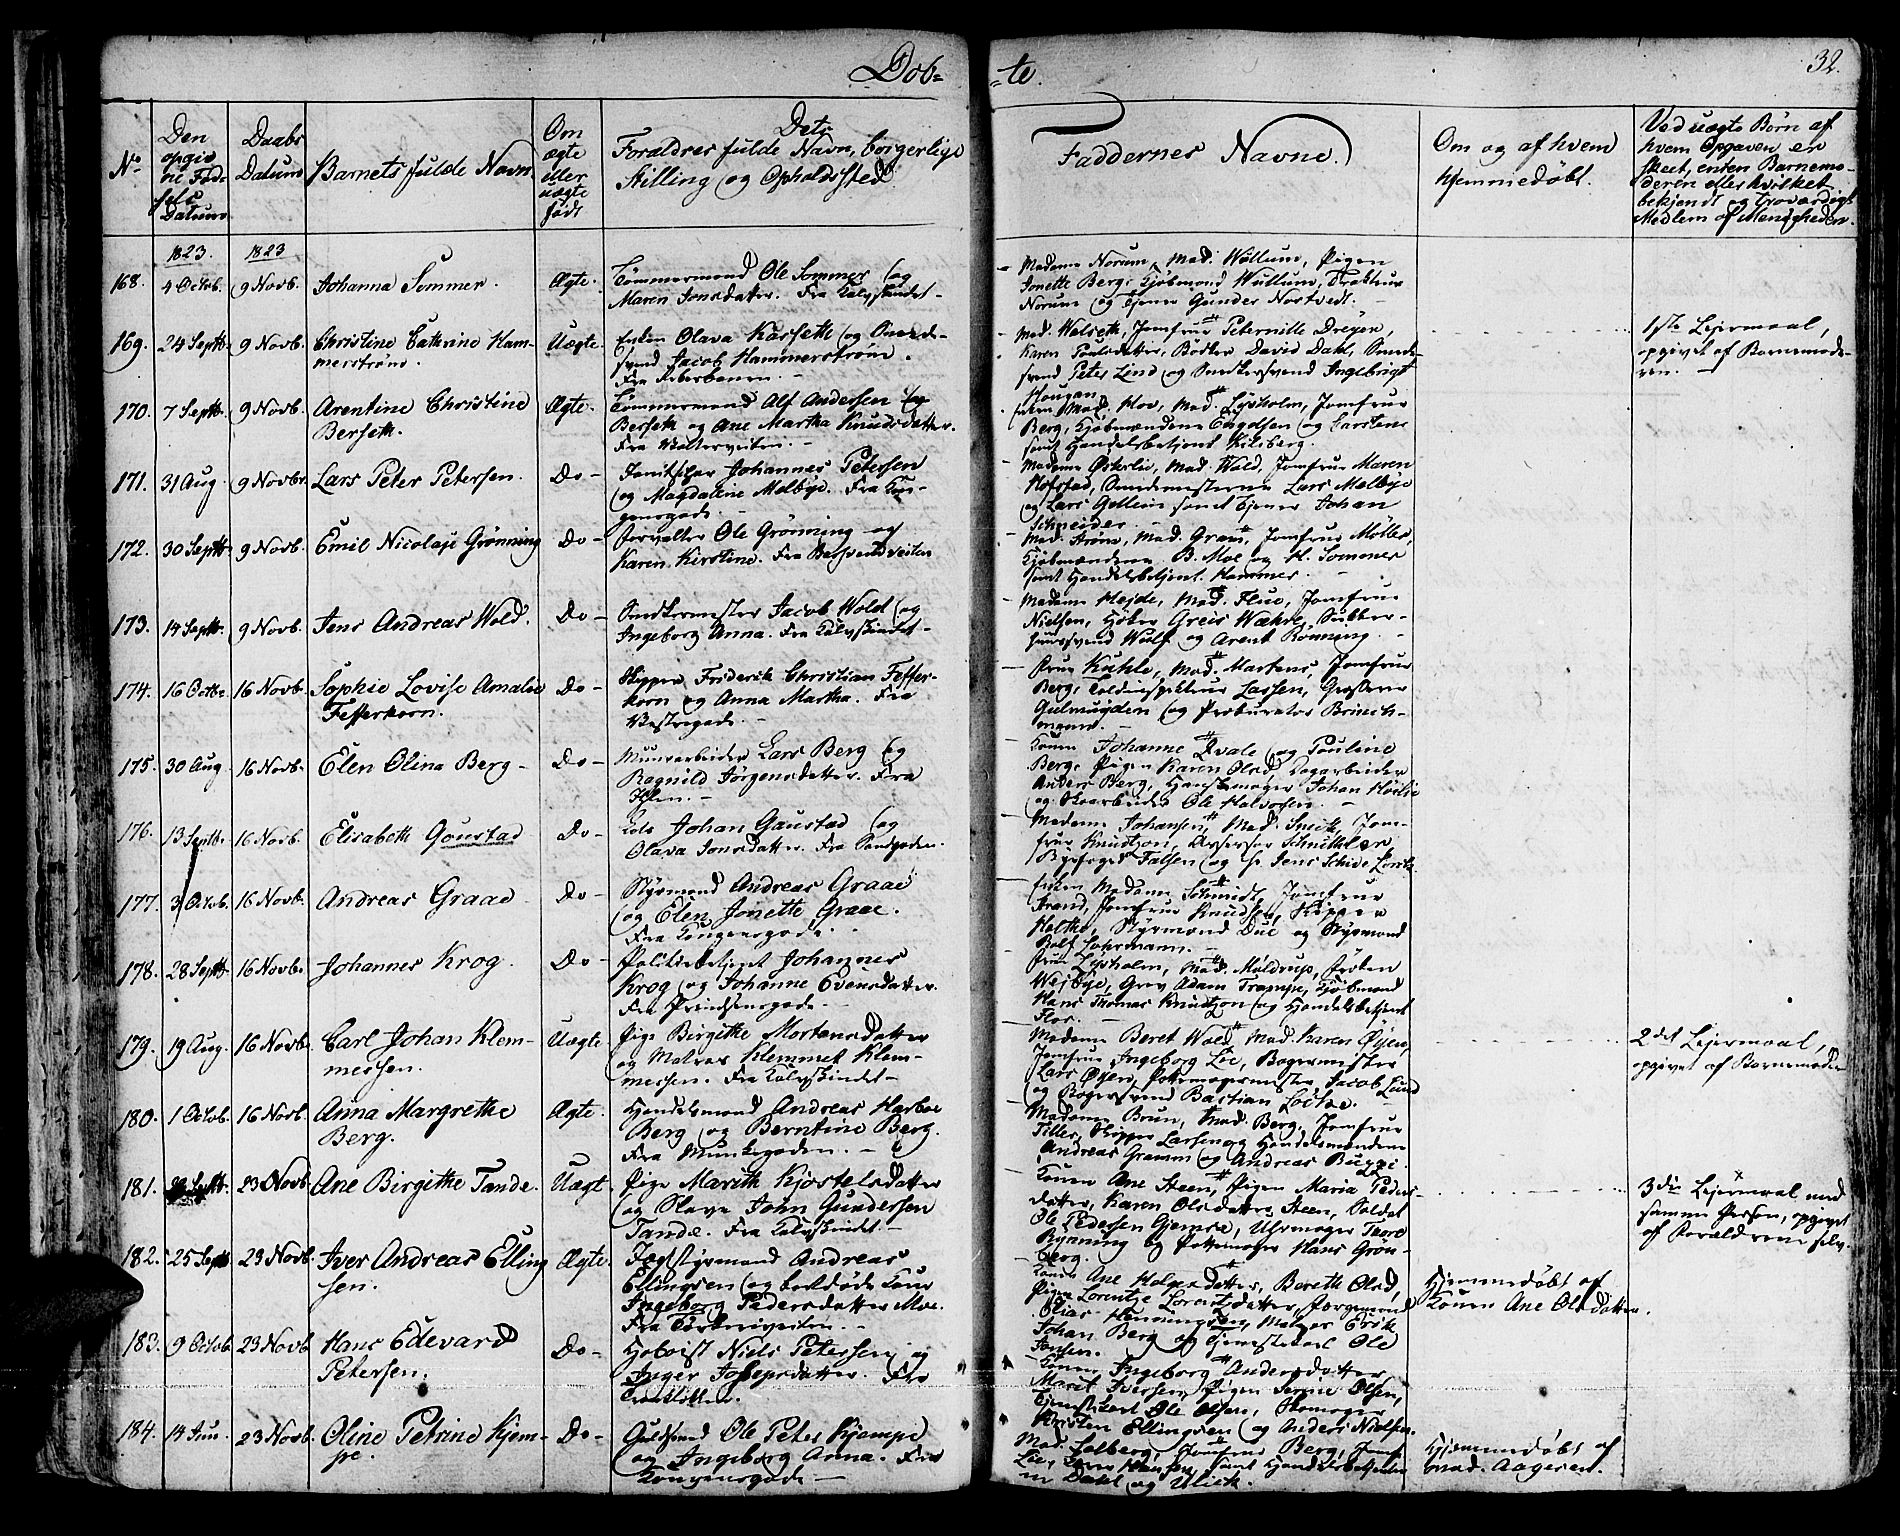 Dob=
=te.
32.
No
Den opgivne Fødsels Datum
Daabs Datum
Barnets fulde Navn
Om ægte eller uægte født
Dets Forældres fulde Navn, borgerlige Stilling og Opholdssted
Faddernes Navne.
Om og af hvem hjemmedøbt.
Ved uægte Børn af hvem Opgaven er skeet, enten Barnemoderen eller hvilket bekjendt og troværdigt Medlem af Menigheden.
1823. 1823
168. 4 Octob. 9 Novb. Johanna Sommer. Ægte.
Tømmermand Ole Sommer og
Maren Jonsdatter. Fra Kalvskindet
Madame Norum, Mad. Wollum, Pigen
Jonette Berg, Kjøbmand Wullum,
Norum og Tjener Gunder Nortvedt.
169. 24 Septb. 9 Novb. Christine Cathrine Ham-
merstrøm. Uægte.
Enken Olava Kårseth og Smede-
svend Jacob Hammerstrøm.
Mad. Welseth, Jomfrue Peternille Dreyer,
Karen Poulsdatter, Bødker David Dahl, Smede-
svend Peter Lind og Snedkersvend Ingebrigt
Hougan.
1ste Lejermaal,
opgivet af Barnemode-
ren.
170. 7 Septb. 9 Novb. Arentine Christine
Berseth. Ægte.
Tømmermand Alf Andersen
Berseth og Ane Martha Knudsdatter.
Mad. Hov, Mad. Lysholm, Jomfrue
Berg, Kjøbmændene Engelsen og Carstens
samt Handelsbetjent Kilsberg.
171. 31 Aug. 9 Novb. Lars Peter Petersen. Do
Johannes Petersen
og Magdaline Melbye. Fra Kon-
gensgade.
Madame Østerlie, Mad. Wold, Jomfrue Maren
Hofstad, Smedemesterne Lars Melbye
og Lars Gellein samt Tjener Johan
Schneider.
172. 30 Septb. 9 Novb. Emil Nicolaje Grønning Do
Forvalter Ole Grønning og
Karen Kirstine. Fra
Mad. Strøm, Mad. Gram, Jomfrue Möller,
Kjøbmændene B. Moe og H. Sommer
samt Handelsbetjent Hammer.
173. 14 Septb. 9 Novb. Jens Andreas Wold. Do
Snedkermester Jacob Wold og
Ingeborg Anna. Fra Kalvskindet
Madame Hejde, Mad. Flue, Jomfrue
Nielsen, Høker Greis Wæhre,
svend Wulf og Arent Rønning.
174. 16 Octb. 16 Novb. Sophie Lovise Amalie
Fefferkorn. Do
Skipper Friderik Christian Feffer-
korn og Anna Martha. Fra
Frue Kuhle, Mad. Martens, Jomfrue
Berg, Toldinspekteur Lassen, Grosserer
Gulmugden og Prokurator Brinch-
mann.
175. 30 Aug. 16 Novb. Elen Olina Berg Do
Muurarbeider Lars Berg og
Ragnild Jørgensdatter. Fra
Ihlen.
Konen Johanne Qvale og Pouline
Berg, Pigen Karen Olsd. Dagarbeider
Anders Berg, Handskemager Johan Høilie
og Ole Halvorsen.
176. 13 Septb. 16 Novb. Elisabeth Goustad Do
Johan Gaustad og
Olava Jonsdatter. Fra Sandgaden.
Madame Johansen, Mad. Snick, Jom-
frue Knudtzon, Assessor Schnitler,
Byefoged Falsen og Hr. Jens Schive
177. 3 Octob. 16 Novb. Andreas Graae Do
Styrmand Andreas Graae
og Elen Jonette Graae.
Fra Kongensgade.
Enken Madame Schmidt, Jomfrue
Strand, Jomfrue Knudsen, Skipper
Holthe, Styrmand Due og Styrmand
Rolf Lohrmann.
178. 28 Septb. 16 Novb. Johannes Krog. Do
Politiebetjent Johannes
Krog og Johanne Evensdatter.
Fra Prindsensgade
Frue Lysholm, Mad. Møldrup, Frøken
Wejbye, Grev Adam Trampe, Kjøbmand
Hans Thomas Knudtzon og Handelsbetjent
Flor.
179. 19 Aug. 16 Novb. Carl Johan Klem-
messen. Uægte
Pige Birgithe Mortensdatter
og Matros Klemmet Klem-
messen. Fra Kalvskindet
Madame Beret Wold, Mad. Karen Øyen,
Jomfrue Ingeborg Lie, Bagermester
Lars Øyen, Pottemagermester Jacob Lund
og Bagersvend Bastian Locke.
2det Lejermaal,
opgivet af Barnemoder
180. 1 Octob. 16 Novb. Anna Margrethe
Berg. Ægte.
Handelsmand Andreas Harboe
Berg og Berntine Berg.
Fra Munkegaden.
Madame Brun, Mad. Berg, Jomfrue
Tiller, Skipper Larsen og Handelsmændene
Andreas Gramm og Andreas Bugge.
181. Septb. 23 Novb. Ane Birgithe Tande. Uægt.
Pige Marith Kjostelsdatter
og Slave John Gundersen
Tande. Fra Kalvskindet
Konen Ane Steen, Pigen Maria Peders-
datter, Karen Olsdatter Steen, Soldat
Ole Pedersen Gjemse, Uhrmager Thore
Rønning og Pottemager Hans Grøn-
berg.
3die Lejermaal med
samme Person, opgivet
af Forældrene selv.
182. 25 Septb 23 Novb. Iver Andreas Elling
sen. Ægte.
Jægtstyrmand Andreas
Ellingsen og
Ingeborg Pedersdatter Moe.
Konen Ane Holgersdatter, Bereth Olsd,
Pigen Lorentze Lorentsdatter,
Elias Henningsen, Matros Erik
Johan Berg og Tjenestekarl Ole
Jonsen.
Hjemmedøbt af
Konen Ane Olsdatter.
183. 9 Octob. 23 Novb Hans Edevard
Petersen. Do
Hoboist Niels Petersen og
Inger Josepsdatter. Fra
Konen Ingeborg Andersdatter
Marit Iversen, Pigen Serine Olsen,
Tjenestekarl Ole Olsen, Skomager
Christen Ellingsen og Anders Nielsen.
184. 14 Juu. 23 Novb. Oline Petrine Kjem-
pe. Do
Guldsmed Ole Peter Kjempe
og Ingeborg Anna. Fra
Kongensgade
Mad. Solberg, Jomfrue Berg, Jomf.
Lie, Hansen samt Handelsbetjentene
Dahl og Ulich.
Hjemmedøbt af
Mad. Aagesen.